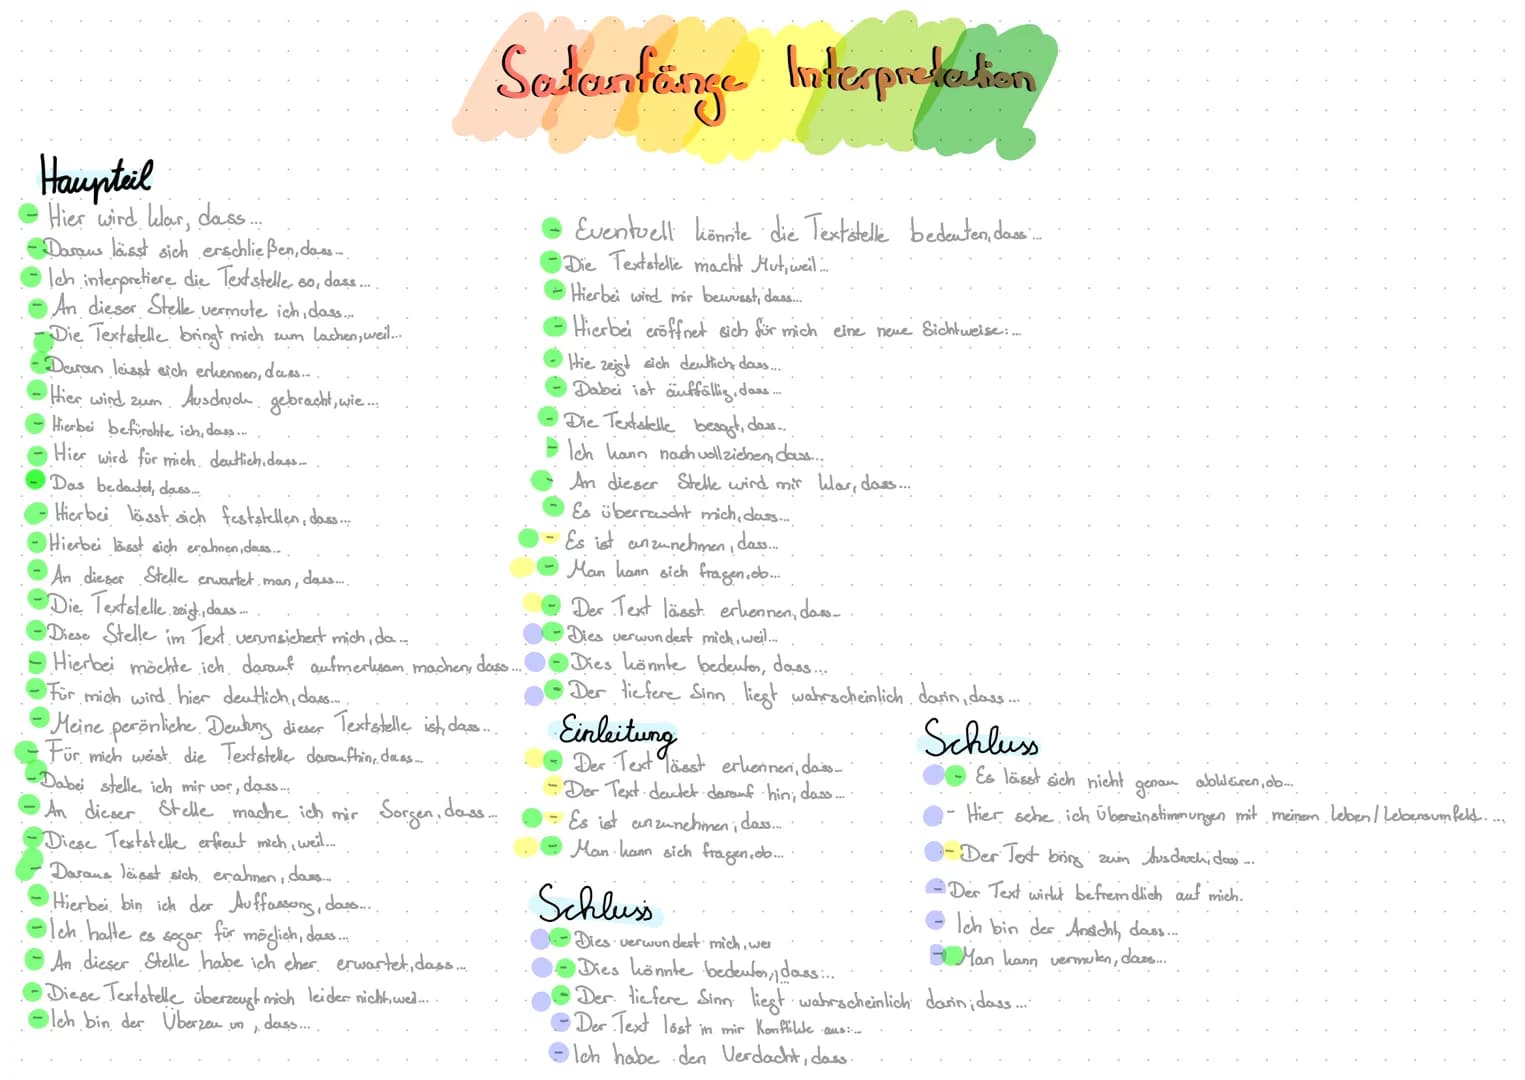 Satzanfänge Interpretation
Haupteil
- Hier wird klar, dass...
- Daraus lässt sich erschließen, dass...
- Ich interpretiere die Textstelle so, dass...
- An dieser Stelle vermute ich, dass...
- Die Textstelle bringt mich zum lachen, weil...
- Daran lässt sich erkennen, dass...
- Hier wird zum Ausdruck gebracht, wie...
- Hierbei befürchte ich, dass...
- Hier wird für mich deutlich, dass...
- Das bedeutet, dass...
- Hierbei lässt sich feststellen, dass...
- Hierbei lässt sich erahnen, dass...
- An dieser Stelle erwartet man, dass...
- Die Textstelle zeigt, dass...
- Diese Stelle im Text verunsichert mich, da...
- Hierbei möchte ich darauf aufmerksam machen, dass...
- Für mich wird hier deutlich, dass...
- Meine perönliche Deutung dieser Textstelle ist, dass...
- Für mich weist die Textstelle daraufhin, dass...
- Dabei stelle ich mir vor, dass...
- An dieser Stelle mache ich mir Sorgen, dass...
- Diese Textstelle erfreut mich, weil...
- Daraus lässt sich erahnen, dass...
- Hierbei bin ich der Auffassung, dass...
- Ich halte es sogar für möglich, dass...
- An dieser Stelle habe ich eher erwartet, dass...
- Diese Textstelle überzeugt mich leider nicht, weil...
- Ich bin der Überzeu un, dass...
- Eventuell könnte die Textstelle bedeuten, dass...
- Die Textstelle macht Mut, weil...
- Hierbei wird mir bewusst, dass...
- Hierbei eröffnet sich für mich eine neue Sichtweise:...
- Hie zeigt sich deutlich, dass...
- Dabei ist auffällig, dass...
- Die Textstelle besagt, dass...
- Ich kann nachvollziehen, dass...
- An dieser Stelle wird mir klar, dass...
- Es überrascht mich, dass...
- Es ist anzunehmen, dass...
- Man kann sich fragen, ob...
- Der Text lässt erkennen, dass...
- Dies verwundert mich, weil...
- Dies könnte bedeuten, dass...
- Der tiefere Sinn liegt wahrscheinlich darin, dass...
Einleitung
- Der Text lässt erkennen, dass...
- Der Text deutet darauf hin, dass...
- Es ist anzunehmen, dass...
- Man kann sich fragen, ob...
Schluss
- Dies verwundert mich, wei
- Dies könnte bedeuten, dass...
- Der tiefere Sinn liegt wahrscheinlich darin, dass...
- Der Text löst in mir Konflikte aus:...
- Ich habe den Verdacht, dass
Schluss
- Es lässt sich nicht genau abklären, ob...
- Hier sehe ich Übereinstimmungen mit meinem Leben/Lebensumfeld...
- Der Text bring zum Ausdruck, dass...
- Der Text wirkt befremdlich auf mich.
- Ich bin der Ansicht, dass...
- Man kann vermuten, dass...